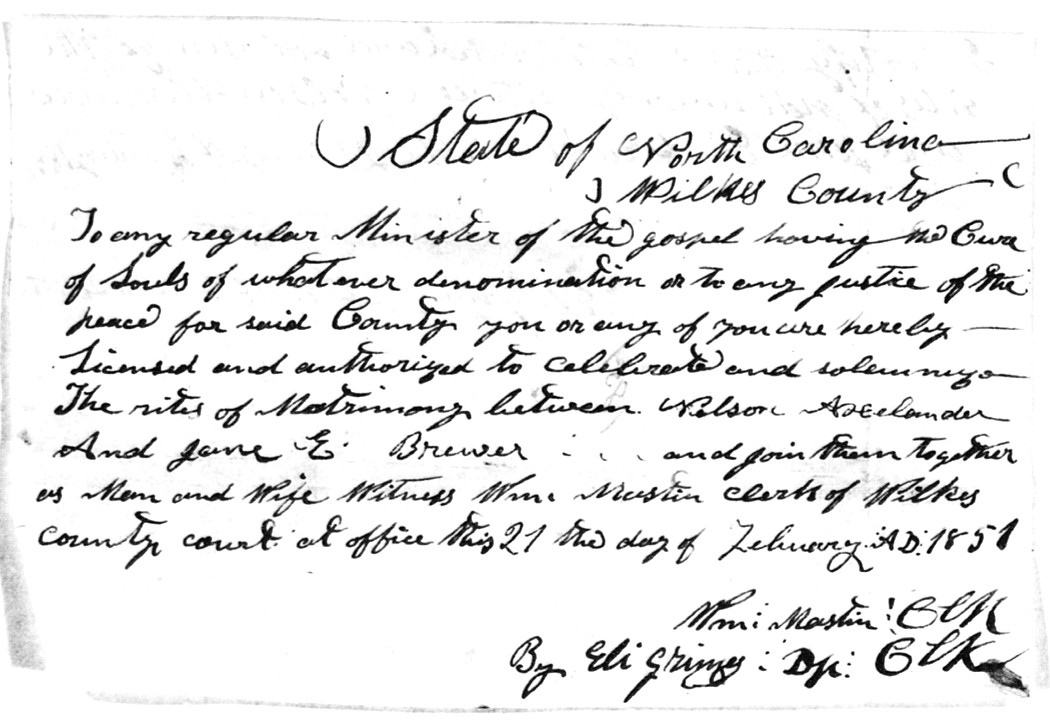 State of North Carolina
Wilkes County
To any regular Minister of the gospel having the Cure
of Souls of whatever denomination or to any justice of the
peace for said County you or any of you are hereby
Licensed and authorized to celebrate and solemnize
The rites of Matrimony between Nelson Axelander
And Jane E. Brewer . . . . and join them together
as Man and Wife Witness Wm: Mastin clerk of Wilkes
county court at office this 21 the day of February AD: 1851
Wm: Mastin: Clk
By Eli Grimes: Dp: Clk